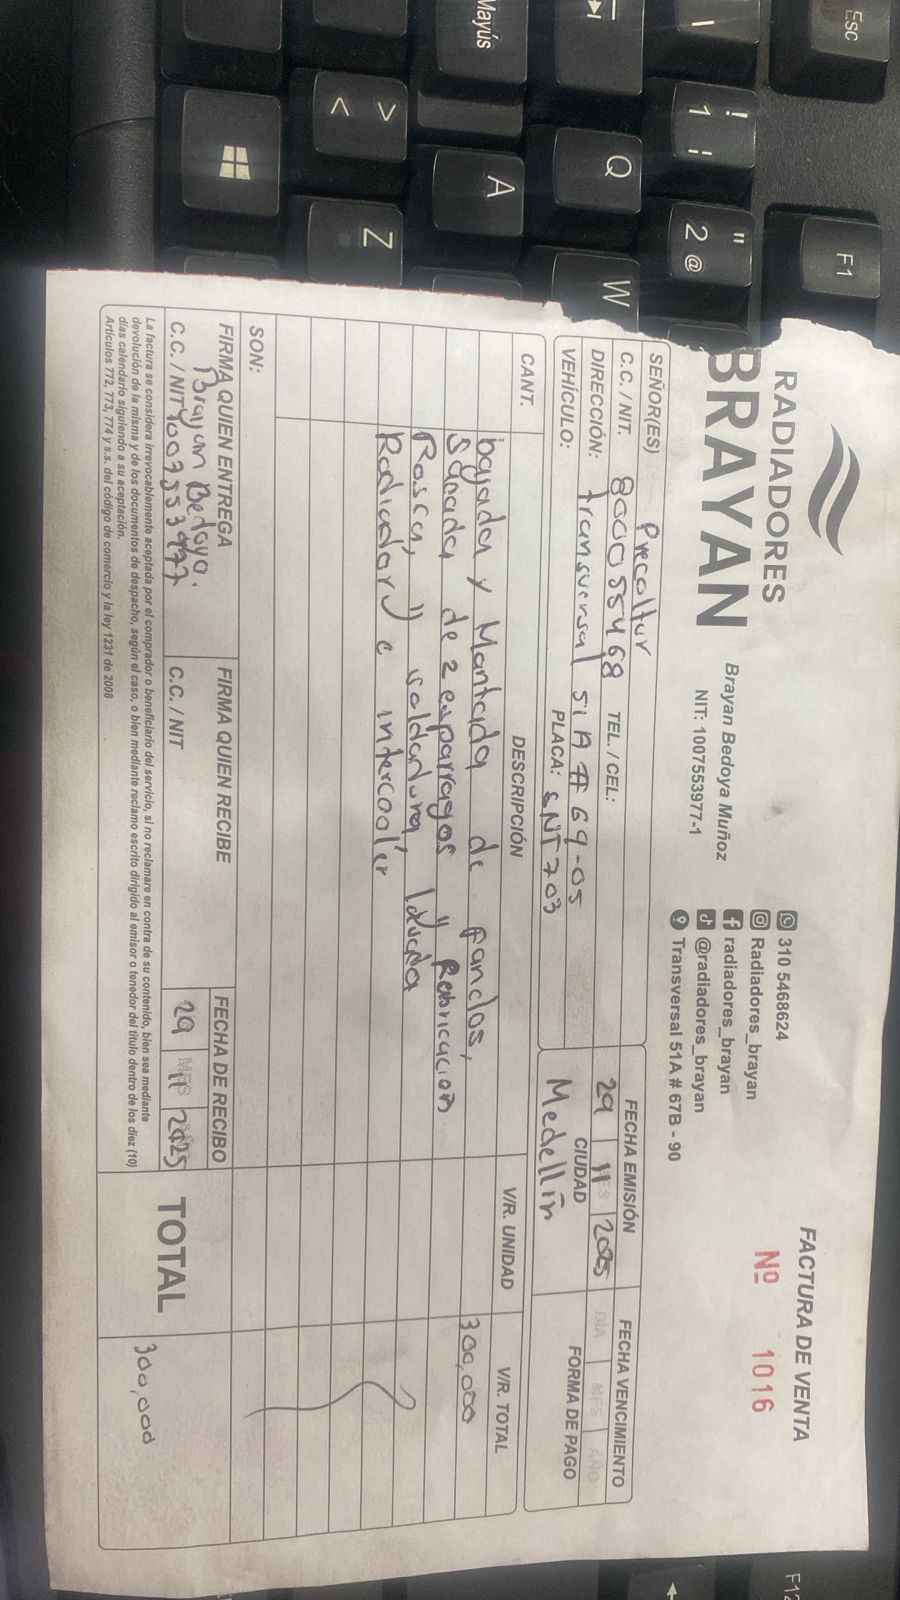 RADIADORES
BRAYAN
Brayan Bedoya Muñoz
NIT: 1007553977-1
310 5468624
Radiadores_brayan
radiadores_brayan
@radiadores_brayan
Transversal 51A # 67B - 90
FACTURA DE VENTA
Nº 1016
SEÑOR(ES) Precoltur
C.C. / NIT. 8000558468 TEL. / CEL:
DIRECCIÓN: transversal 51A # 69-05
VEHÍCULO: PLACA: SNT703
FECHA EMISIÓN
29 11 2025
CIUDAD
Medellín
FECHA VENCIMIENTO
DIA MES AÑO
FORMA DE PAGO
CANT. DESCRIPCIÓN V/R. UNIDAD V/R. TOTAL
bajada y Montada de panclos, 300,000
Sacada de 2 esparragos y Rebricacion
Rosca, soldadura, lavada
Radiador e intercooler
SON:
FIRMA QUIEN ENTREGA
Brayan Bedoya.
C.C. / NIT 1007553977
FIRMA QUIEN RECIBE
C.C. / NIT
FECHA DE RECIBO
29 MES 11 2025
TOTAL 300,000
La factura se considera irrevocablemente aceptada por el comprador o beneficiario del servicio, si no reclamare en contra de su contenido, bien sea mediante
devolución de la misma y de los documentos de despacho, según el caso, o bien mediante reclamo escrito dirigido al emisor o tenedor del título dentro de los diez (10)
días calendario siguiendo a su aceptación.
Artículos 772, 773, 774 y s.s. del código de comercio y la ley 1231 de 2008
Esc
F1
F12
! 1 ¡
" 2 @
Q
W
Mayús
A
> <
Z